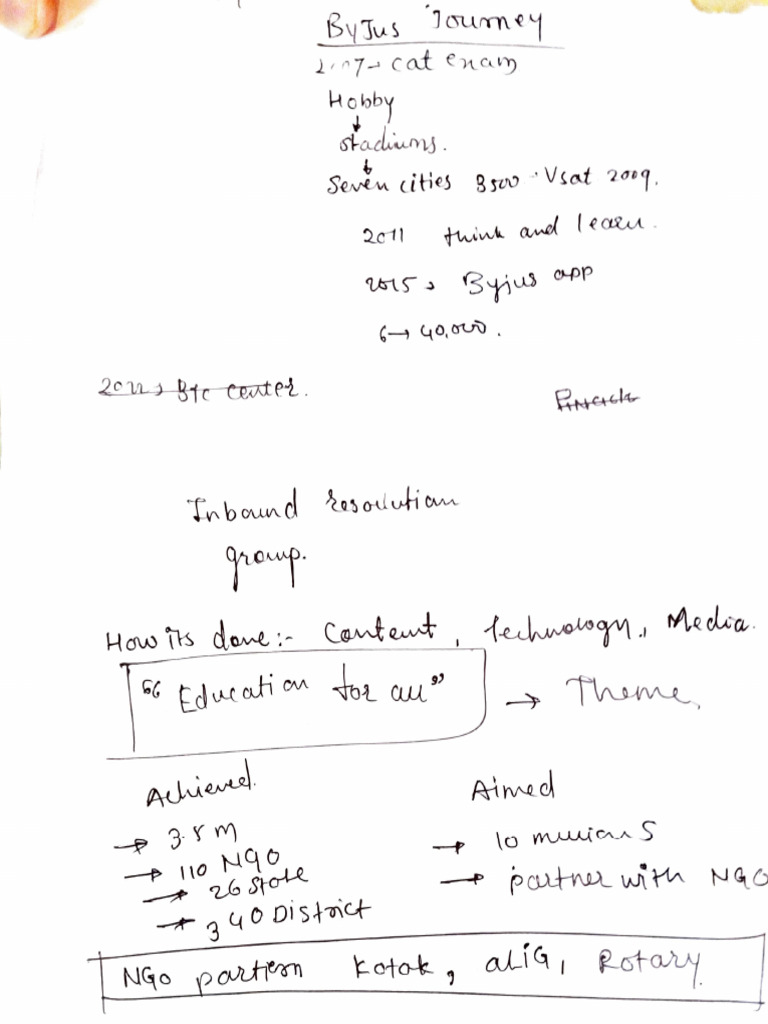 ByJus Journey
2007→ cat enam
Hobby
↓
stadiums.
↓
Seven cities 3500 · Vsat 2009.
2011 think and learn.
2015 → Byjus app
6→ 40,000.
Btc center.
Inbound resolution
group.
How its done:- Content, Technology, Media.
"Education for all" → Theme.
Achieved. Aimed
→ 3.5 m → 10 millions
→ 110 NGO → partner with NGO
→ 26 State
→ 340 District
NGO partiern Kotak, aliG, Rotary.